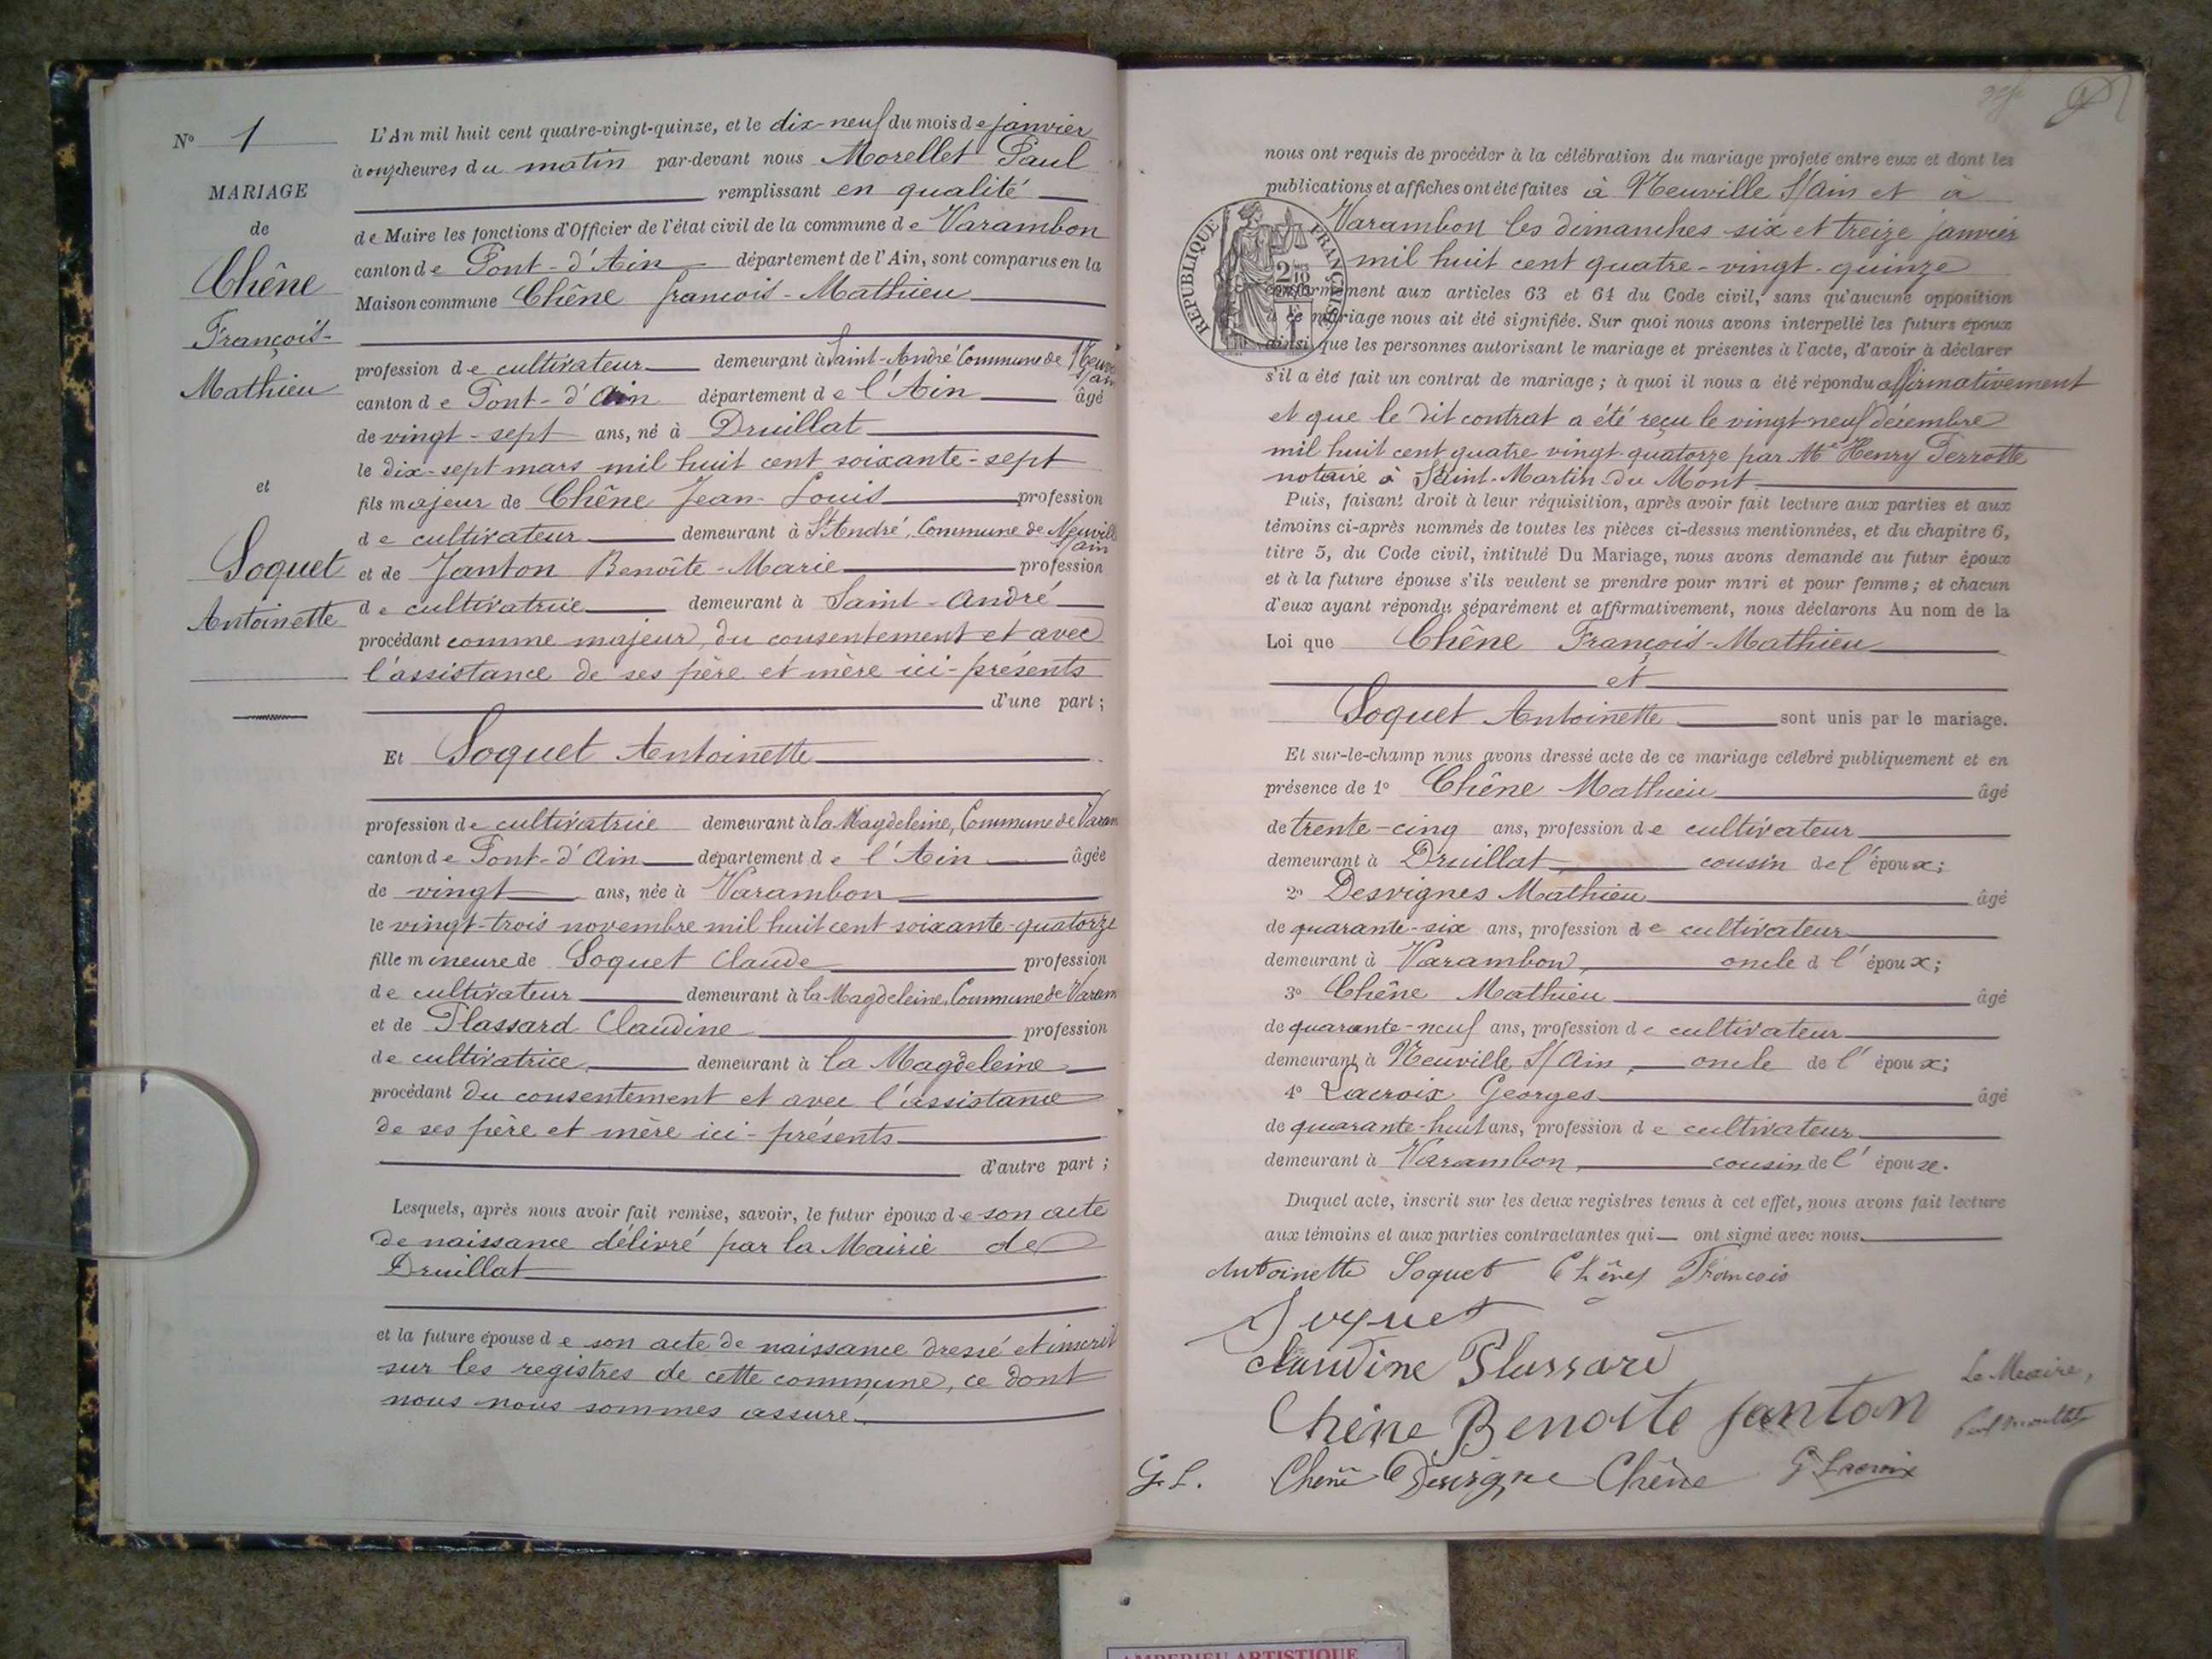 N° 1
MARIAGE
de
Chêne
François-
Mathieu
et
Soquet
Antoinette
L'An mil huit cent quatre-vingt-quinze, et le dix-neuf du mois de janvier
à onze heures du matin par-devant nous Morellet Paul
remplissant en qualité
de Maire les fonctions d'Officier de l'état civil de la commune de Varambon
canton de Pont-d'Ain département de l'Ain, sont comparus en la
Maison commune Chêne françois-Mathieu
profession de cultivateur demeurant à Saint-André Commune de
s/ain
canton de Pont-d'Ain département de l'Ain âgé
de vingt-sept ans, né à Druillat
le dix-sept mars mil huit cent soixante-sept
fils majeur de Chêne Jean-Louis profession
de cultivateur demeurant à St André, Commune de Neuville
s/ain
et de Janton Benoîte-Marie profession
de cultivatrice demeurant à Saint-André
procédant comme majeur, du consentement et avec
l'assistance de ses père et mère ici-présents
d'une part ;
Et Soquet Antoinette
profession de cultivatrice demeurant à la Magdeleine, Commune de Varam
canton de Pont-d'Ain département de l'Ain âgée
de vingt ans, née à Varambon
le vingt-trois novembre mil huit cent soixante-quatorze
fille mineure de Soquet Claude profession
de cultivateur demeurant à la Magdeleine, Commune de Varam
et de Plassard Claudine profession
de cultivatrice demeurant à la Magdeleine
procédant du consentement et avec l'assistance
de ses père et mère ici-présents
d'autre part ;
Lesquels, après nous avoir fait remise, savoir, le futur époux de son acte
de naissance délivré par la Mairie de
Druillat
et la future épouse de son acte de naissance dressé et inscrit
sur les registres de cette commune, ce dont
nous nous sommes assuré.
nous ont requis de procéder à la célébration du mariage projeté entre eux et dont les
publications et affiches ont été faites à Neuville s/Ain et à
Varambon les dimanches six et treize janvier
mil huit cent quatre-vingt-quinze
RÉPUBLIQUE FRANÇAISE
conformément aux articles 63 et 64 du Code civil, sans qu'aucune opposition
à ce mariage nous ait été signifiée. Sur quoi nous avons interpellé les futurs époux
ainsi que les personnes autorisant le mariage et présentes à l'acte, d'avoir à déclarer
s'il a été fait un contrat de mariage ; à quoi il nous a été répondu affirmativement
et que le dit contrat a été reçu le vingt-neuf décembre
mil huit cent quatre vingt-quatorze par Me Henry Perrotte
notaire à Saint-Martin-du Mont
Puis, faisant droit à leur réquisition, après avoir fait lecture aux parties et aux
témoins ci-après nommés de toutes les pièces ci-dessus mentionnées, et du chapitre 6,
titre 5, du Code civil, intitulé Du Mariage, nous avons demandé au futur époux
et à la future épouse s'ils veulent se prendre pour mari et pour femme ; et chacun
d'eux ayant répondu séparément et affirmativement, nous déclarons Au nom de la
Loi que Chêne François-Mathieu
et
Soquet Antoinette sont unis par le mariage.
Et sur-le-champ nous avons dressé acte de ce mariage célébré publiquement et en
présence de 1° Chêne Mathieu âgé
de trente-cinq ans, profession de cultivateur
demeurant à Druillat, cousin de l'époux ;
2° Desvignes Mathieu âgé
de quarante-six ans, profession de cultivateur
demeurant à Varambon, oncle d l'époux ;
3° Chêne Mathieu âgé
de quarante-neuf ans, profession de cultivateur
demeurant à Neuville s/Ain, oncle de l'époux ;
4° Lacroix Georges âgé
de quarante-huit ans, profession de cultivateur
demeurant à Varambon, cousin de l'épouse.
Duquel acte, inscrit sur les deux registres tenus à cet effet, nous avons fait lecture
aux témoins et aux parties contractantes qui ont signé avec nous.
Antoinette Soquet Chêne François
Soquet
Claudine Plassard
Le Maire,
Chêne Benoite Janton
G. L. Chêne Desvigne Chêne G Lacroix
AMBERIEU ARTISTIQUE